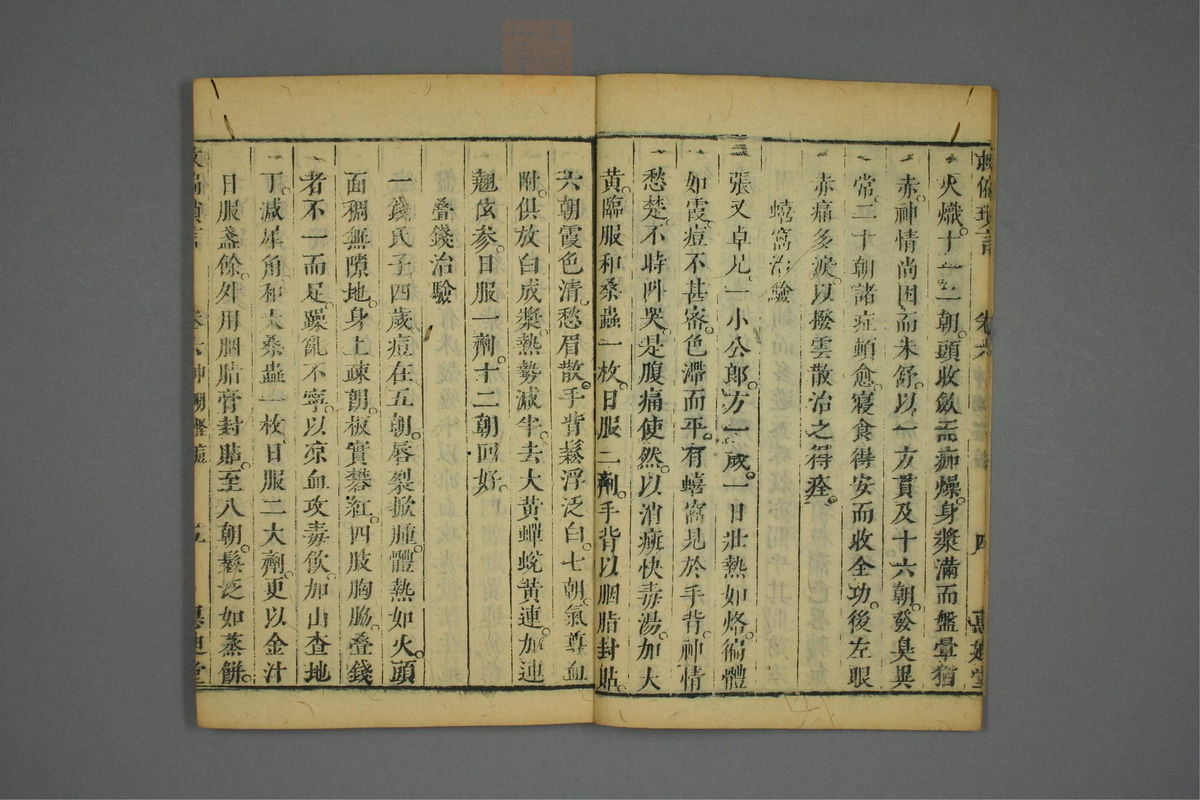 救偏瑣言 卷六 四 惠迪堂
火熾。十一二朝。頭收斂而痂燥。身漿滿而盤暈猶
赤。神情尚困而未舒。以一方貫及十六朝。發臭異
常。二十朝諸症頓愈。寢食得安而收全功。後左眼
赤痛多淚。以撥雲散治之得痊。
蟢窩治驗
張又卓兄。一小公郎。方一歲。一日壯熱如烙。徧體
如霞。痘不甚密。色滯而平。有蟢窩見於手背。神情
愁楚。不時呌哭。是腹痛使然。以消癍快毒湯。加大
黃。臨服和桑蟲一枚。日服二劑。手背以胭脂封貼。
六朝霞色清。愁眉散。手背鬆浮泛白。七朝。氣尊血
附。俱放白成漿。熱勢減半。去大黃蟬蛻黃連。加連
翹佽參。日服一劑。十二朝囬好。
叠錢治驗
一錢氏子四歲。痘在五朝。唇裂掀腫。體熱如火。頭
面稠無隙地。身上疎朗。板實礬紅。四肢胸脇。叠錢
者不一而足。躁亂不寧。以凉血攻毒飲。加山查地
丁。減犀角和大桑蟲一枚。日服二大劑。更以金汁
日服盞餘。外用胭脂膏封貼。至八朝。鬆泛如蒸餅。
救偏瑣言 卷六 五 惠迪堂